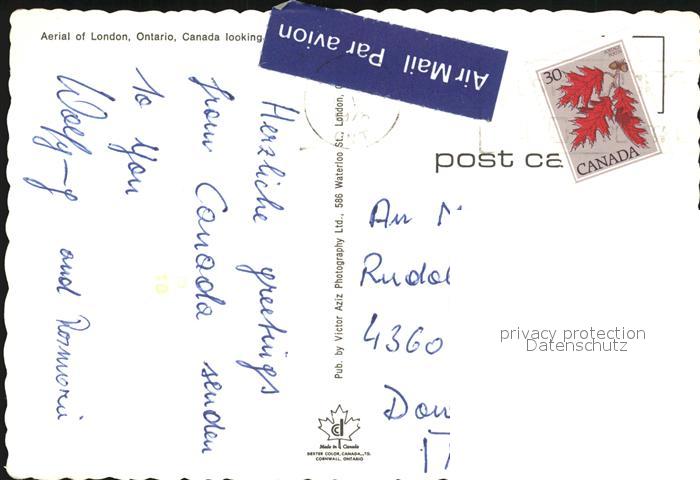 Aerial of London, Ontario, Canada looking
Air Mail Par avion
30
CANADA
post ca
Herzliche greetings
from Canada senden
to you
Wolfy—g and Rosmarie
Pub. by Victor Aziz Photography Ltd., 586 Waterloo St., London,
An
Rudol
4360
Don
privacy protection
Datenschutz
Made in Canada
DEXTER COLOR, CANADA, LTD.
CORNWALL, ONTARIO